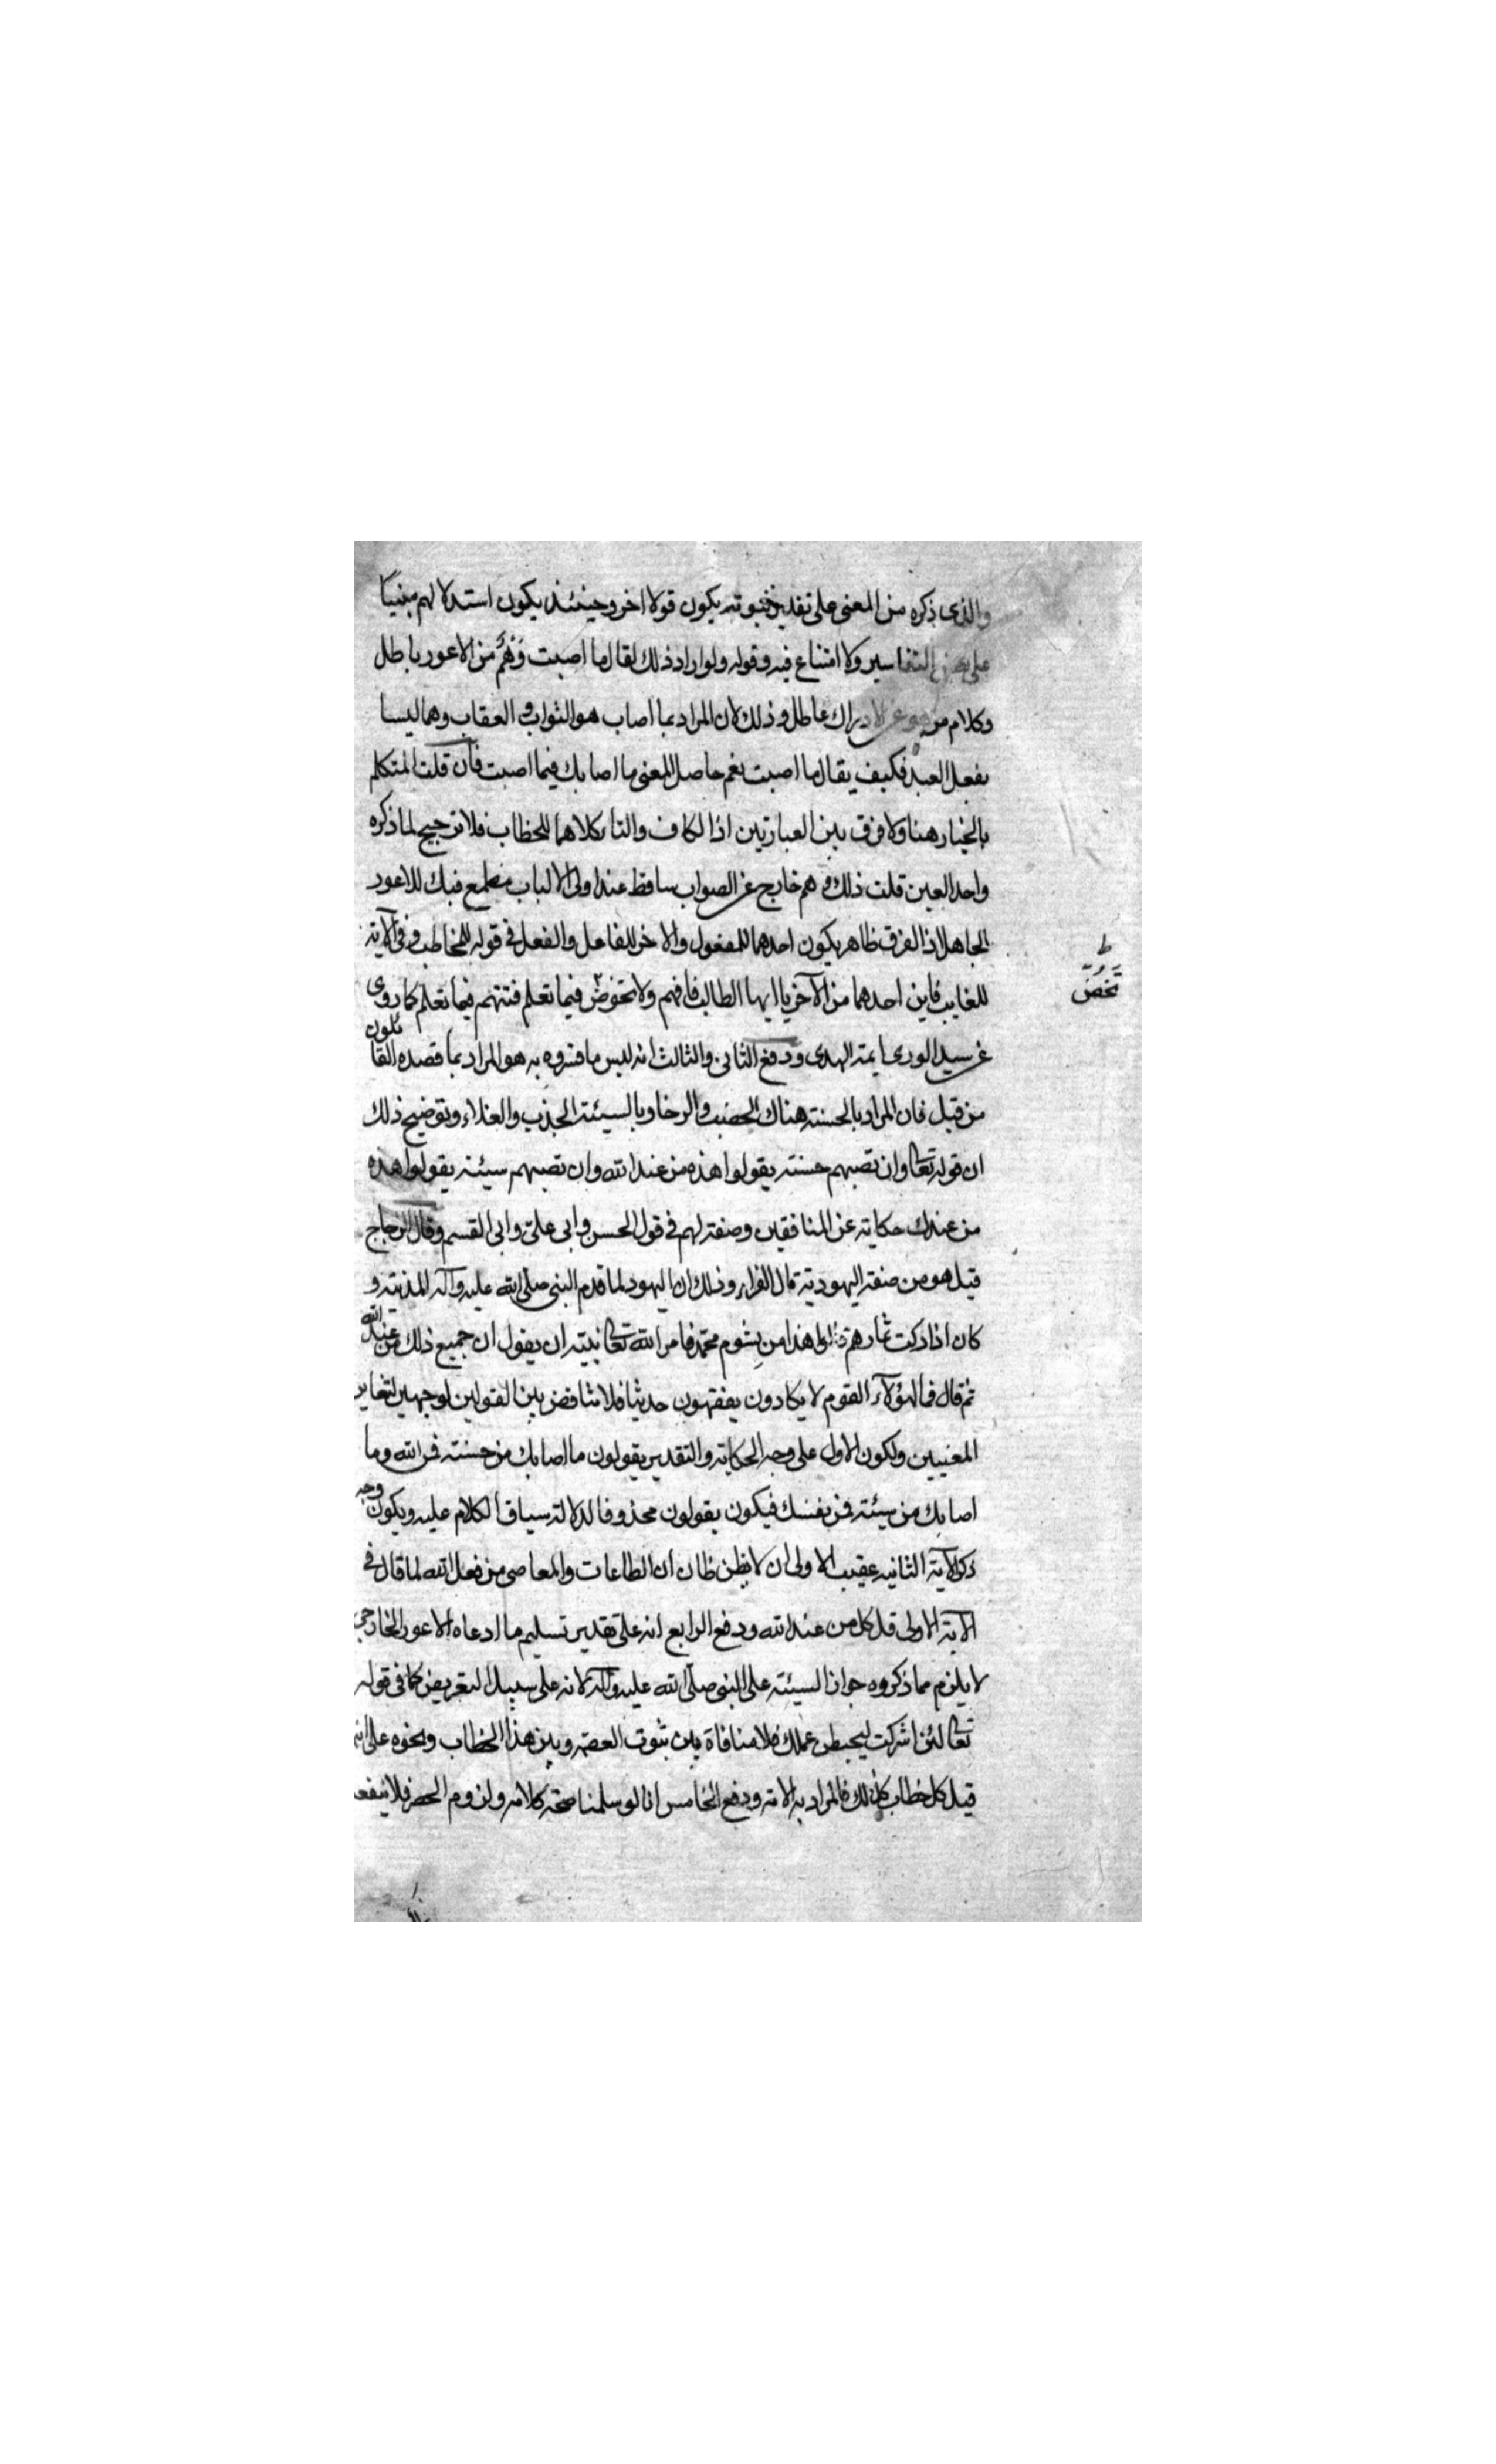 والذى ذكره من المعنى على تقدير ثبوته يكون قولا اخر وحينئذ يكون استدلالهم مبنيا
على بعض التفاسير ولا امتناع فيه وقوله ولو اراد ذلك لقال ما اصبت وَهْمٌ من الاعور باطل
وكلام من هو عن الادراك عاطل وذلك لان المراد بما اصاب هو الثواب و العقاب وهما ليسا
بفعل العبد فكيف يقال ما اصبت نعم حاصل المعنى ما اصابك فيما اصبت فان قلت المتكلم
بالخيار هنا ولا فرق بين العبارتين اذ الكاف والتا كلاهما للخطاب فلا ترجيح لما ذكره
واحد العين قلت ذلك وهم خارج عن الصواب ساقط عند اولى الالباب فيك للاعور
الجاهل اذ الفرق ظاهر يكون احدهما للمفعول والاخر للفاعل والفعل فى قوله للمخاطب وفى الآية
للغايب فاين احدهما من الآخر يا ايها الطالب فافهم ولا تخوض فيما تعلم فتتهم فيما تعلم كما روى
تخُض ط
عن سيد الورى ايمة الهدى ودفع الثانى والثالث انه ليس ما فسروه به هو المراد بما قصده القائلون
من قبل فان المراد بالحسنة هناك الخصب والرخا وبالسيئة الجدب والغلاء وتوضيح ذلك
ان قوله تعالى وان تصبهم حسنة يقولوا هذه من عند الله وان تصبهم سيئة يقولوا هذه
من عندك حكاية عن المنافقين وصفة لهم فى قول الحسن وابى على وابى القسم وقال الزجاج
قيل هو من صفة اليهودية قال الفراء وذلك ان اليهود لما قدم النبى صلى الله عليه وآله المدينة و
كان اذا زكت ثمارهم قالوا هذا من بشوم محمد فامر الله تعالى نبيه ان يقول ان جميع ذلك من عند الله
ثم قال فما لهؤلآء القوم لا يكادون يفقهون حديثا فلا تناقض بين القولين لوجهين لتغاير
المعنيين ولكون الاول على وجه الحكاية والتقدير يقولون ما اصابك من حسنة فمن الله وما
اصابك من سيئة فمن نفسك فيكون يقولون محذوفا لدلالة سياق الكلام عليه ويكون وجه
ذكر الآية الثانيه عقيب الاولى ان لا يظن ظان ان الطاعات والمعاصى من فعل الله لما قال فى
الآية الاولى قل كل من عند الله ودفع الرابع انه على تقدير تسليم ما ادعاه الاعور الخارجى
لا يلزم مما ذكروه جواز السيئة على النبى صلى الله عليه وآله لانه على سبيل التعريض كما فى قوله
تعالى لئن اشركت ليحبطن عملك فلا منافاة بين ثبوت العصمة وبين هذا الخطاب ونحوه على انه
قيل كل خطاب كذلك فالمراد به الامة ودفع الخامس انا لو سلمنا صحة كلامه ولزوم الحصر فلا ينفعه